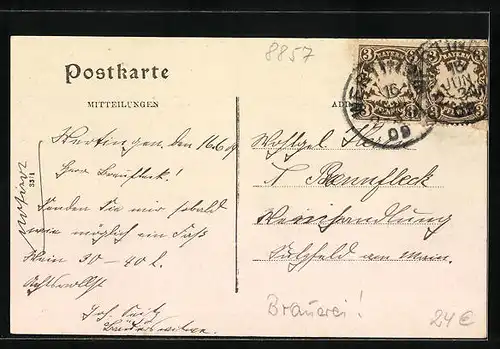 8857
Postkarte
MITTEILUNGEN
3 BAYERN 3
WERTINGEN
16
JUN
09
Wertingen, den 16.6.09
Herr Brennfleck!
Senden Sie mir sobald
wie möglich ein Faß
Wein 30-40 l.
Achtungsvollst
Joh. Seitz
Wohlgeb. Herrn
N. Brennfleck
Weinhandlung
Sulzfeld am Main.
33/1
Brauerei!
24€